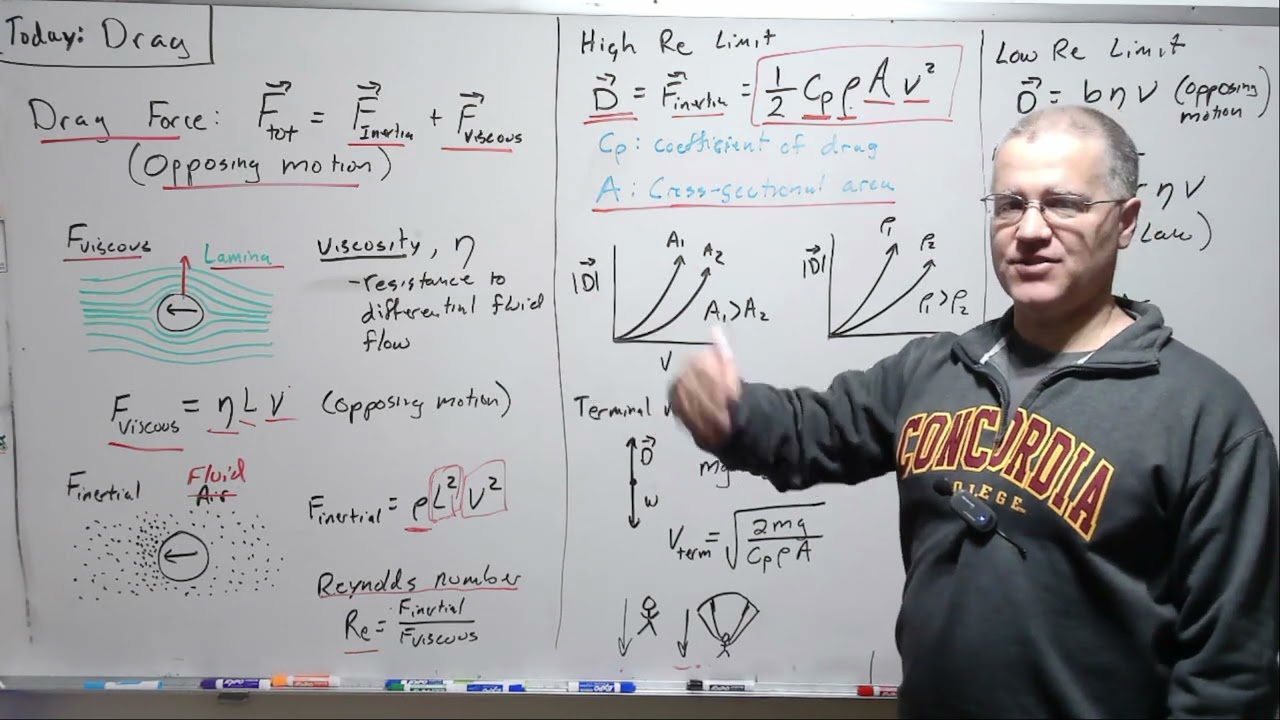 Today: Drag
Drag Force: F⃗tot = F⃗Inertia + F⃗Viscous
(Opposing motion)
Fviscous
Lamina
Viscosity, η
- resistance to
differential fluid
flow
Fviscous = η L v (opposing motion)
Finertial
Fluid
Air
Finertial = ρ L² v²
Reynolds number
Re = Finertial / Fviscous
High Re Limit
D⃗ = F⃗inertia = 1/2 CD ρ A v²
CD: coefficient of drag
A: Cross-sectional area
|D⃗|
A1
A2
A1 > A2
v
|D⃗|
ρ1
ρ2
ρ1 > ρ2
Terminal v
D⃗
w
mg
Vterm = √(2mg / CD ρ A)
Low Re Limit
D⃗ = b η v (opposing
motion)
η v
Law)
CONCORDIA
EXPO